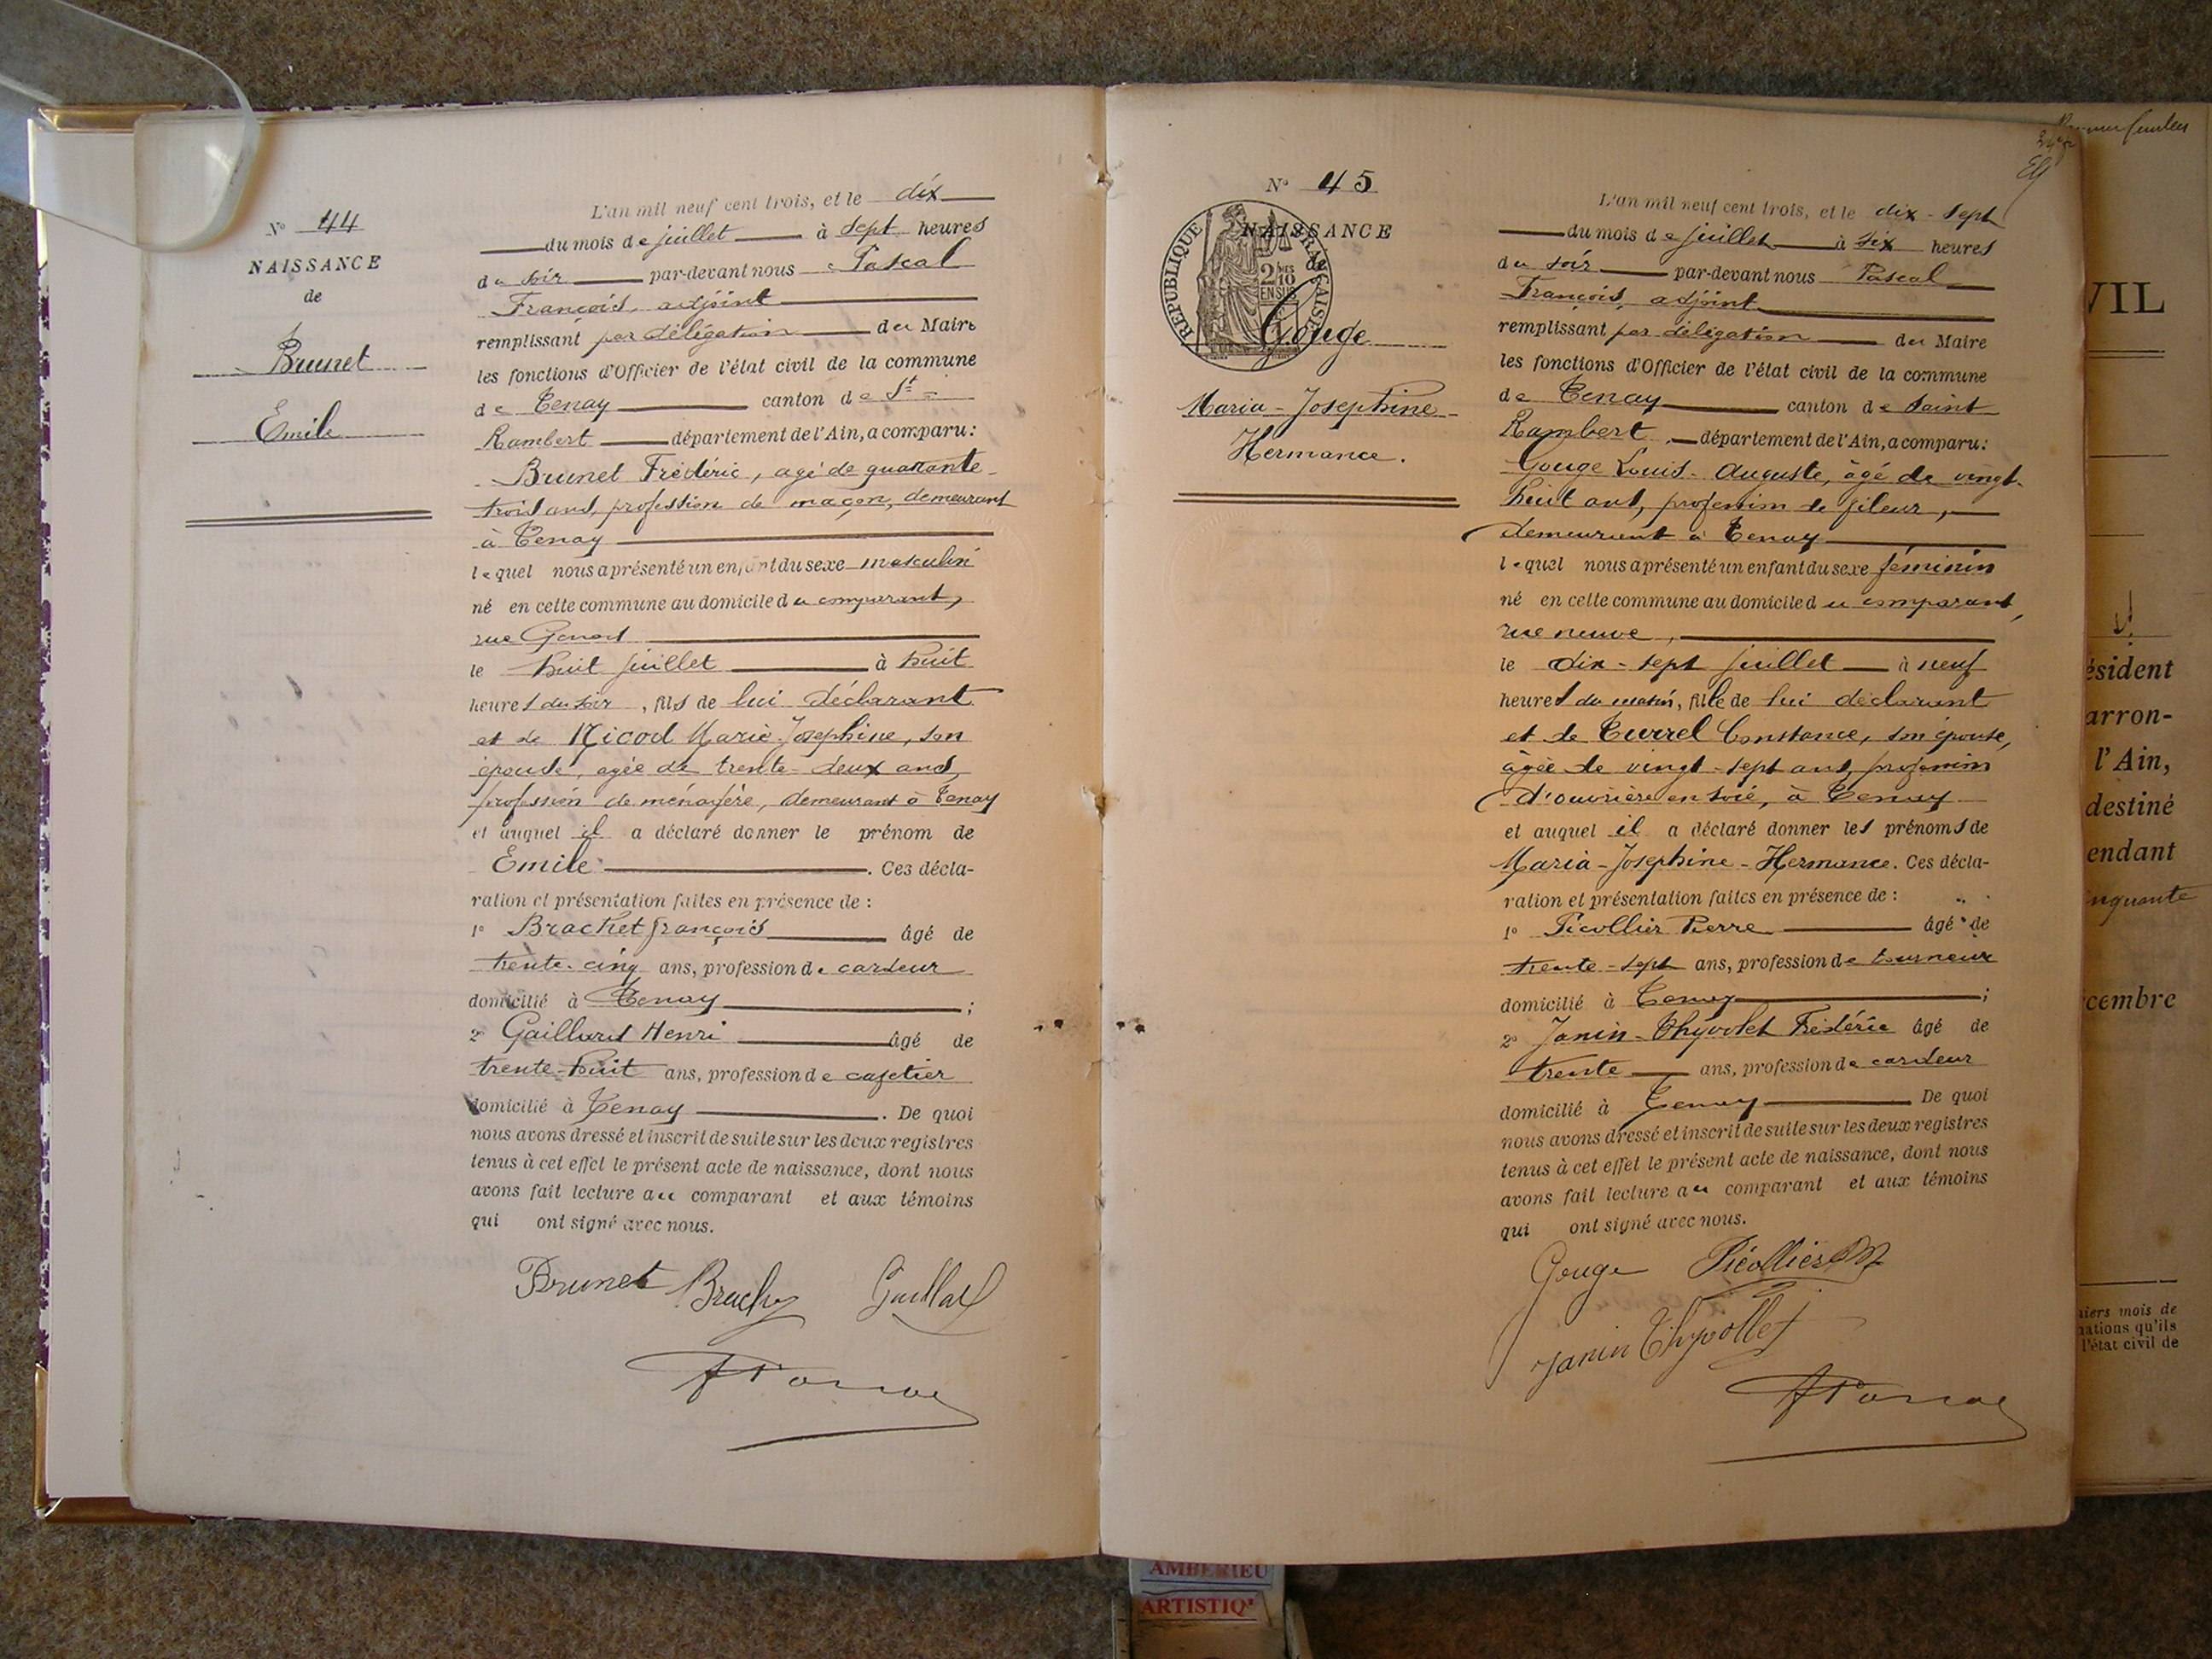 N° 44
NAISSANCE
de
Brunet
Emile
L'an mil neuf cent trois, et le dix
du mois de juillet à sept heures
du soir par-devant nous Pascal
François, adjoint
remplissant par délégation du Maire
les fonctions d'Officier de l'état civil de la commune
de Tenay canton de St =
Rambert département de l'Ain, a comparu :
Brunet Frédéric, agé de quarante-
trois ans, profession de maçon, demeurant
à Tenay
lequel nous a présenté un enfant du sexe masculin
né en cette commune au domicile du comparant,
rue
le huit juillet à huit
heures du soir, fils de lui déclarant
et de Nicod Marie-Josephine, son
épouse, agée de trente-deux ans,
profession de ménagère, demeurant à Tenay
et auquel il a déclaré donner le prénom de
Emile. Ces décla-
ration et présentation faites en présence de :
1° Brachet François âgé de
trente-cinq ans, profession de cardeur
domicilié à Tenay ;
2° Gaillard Henri âgé de
trente-huit ans, profession de cafetier
domicilié à Tenay. De quoi
nous avons dressé et inscrit de suite sur les deux registres
tenus à cet effet le présent acte de naissance, dont nous
avons fait lecture au comparant et aux témoins
qui ont signé avec nous.
Brunet Gaillard
N° 45
NAISSANCE
de
RÉPUBLIQUE FRANÇAISE
2/10
EN SUS
Gouge
Maria-Josephine
Hermance.
L'an mil neuf cent trois, et le dix-sept
du mois de juillet à six heures
du soir par-devant nous Pascal
François, adjoint
remplissant par délégation du Maire
les fonctions d'Officier de l'état civil de la commune
de Tenay canton de Saint
Rambert département de l'Ain, a comparu :
Gouge Louis-Auguste, âgé de vingt-
huit ans, profession de fileur,
demeurant à Tenay
lequel nous a présenté un enfant du sexe féminin
né en cette commune au domicile du comparant,
rue neuve,
le dix-sept juillet à neuf
heures du matin, fille de lui déclarant
et de Turrel Constance, son épouse,
âgée de vingt-sept ans, profession
d'ouvrière en soie, à Tenay
et auquel il a déclaré donner les prénoms de
Maria-Josephine-Hermance. Ces décla-
ration et présentation faites en présence de :
1° Picollier Pierre âgé de
trente-sept ans, profession de tourneur
domicilié à Tenay ;
2° Janin-Thyvolet Frédéric âgé de
trente ans, profession de cardeur
domicilié à Tenay De quoi
nous avons dressé et inscrit de suite sur les deux registres
tenus à cet effet le présent acte de naissance, dont nous
avons fait lecture au comparant et aux témoins
qui ont signé avec nous.
Gouge Picollier
Janin Thyvollet
VIL
ésident
arron-
l'Ain,
destiné
endant
nquante
cembre
iers mois de
nations qu'ils
l'état civil de
AMBERIEU
ARTISTIQ